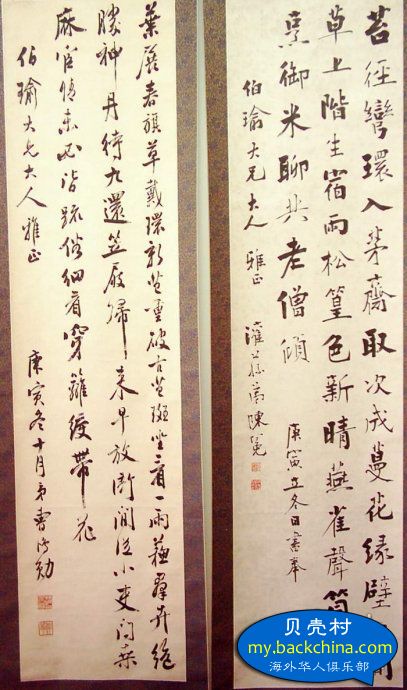 苔徑彎環入茅齋取次成蔓花緣壁
草上階生宿雨松篁色新晴燕雀聲
烹御米聊共老僧傾
庚寅立冬日書奉
伯瑜大兄大人雅正
陳冕
葉展春旗草戴環新苔重破古苔斑坐看一雨蘇群卉絕
勝神丹待九還笠屐歸來早放衙閒從小吏問桑
麻官情未必皆疏俗細看穿籬綬帶花
伯瑜大兄大人雅正
庚寅冬十月弟曹鴻勛
贝壳村
my.backchina.com
海外华人俱乐部